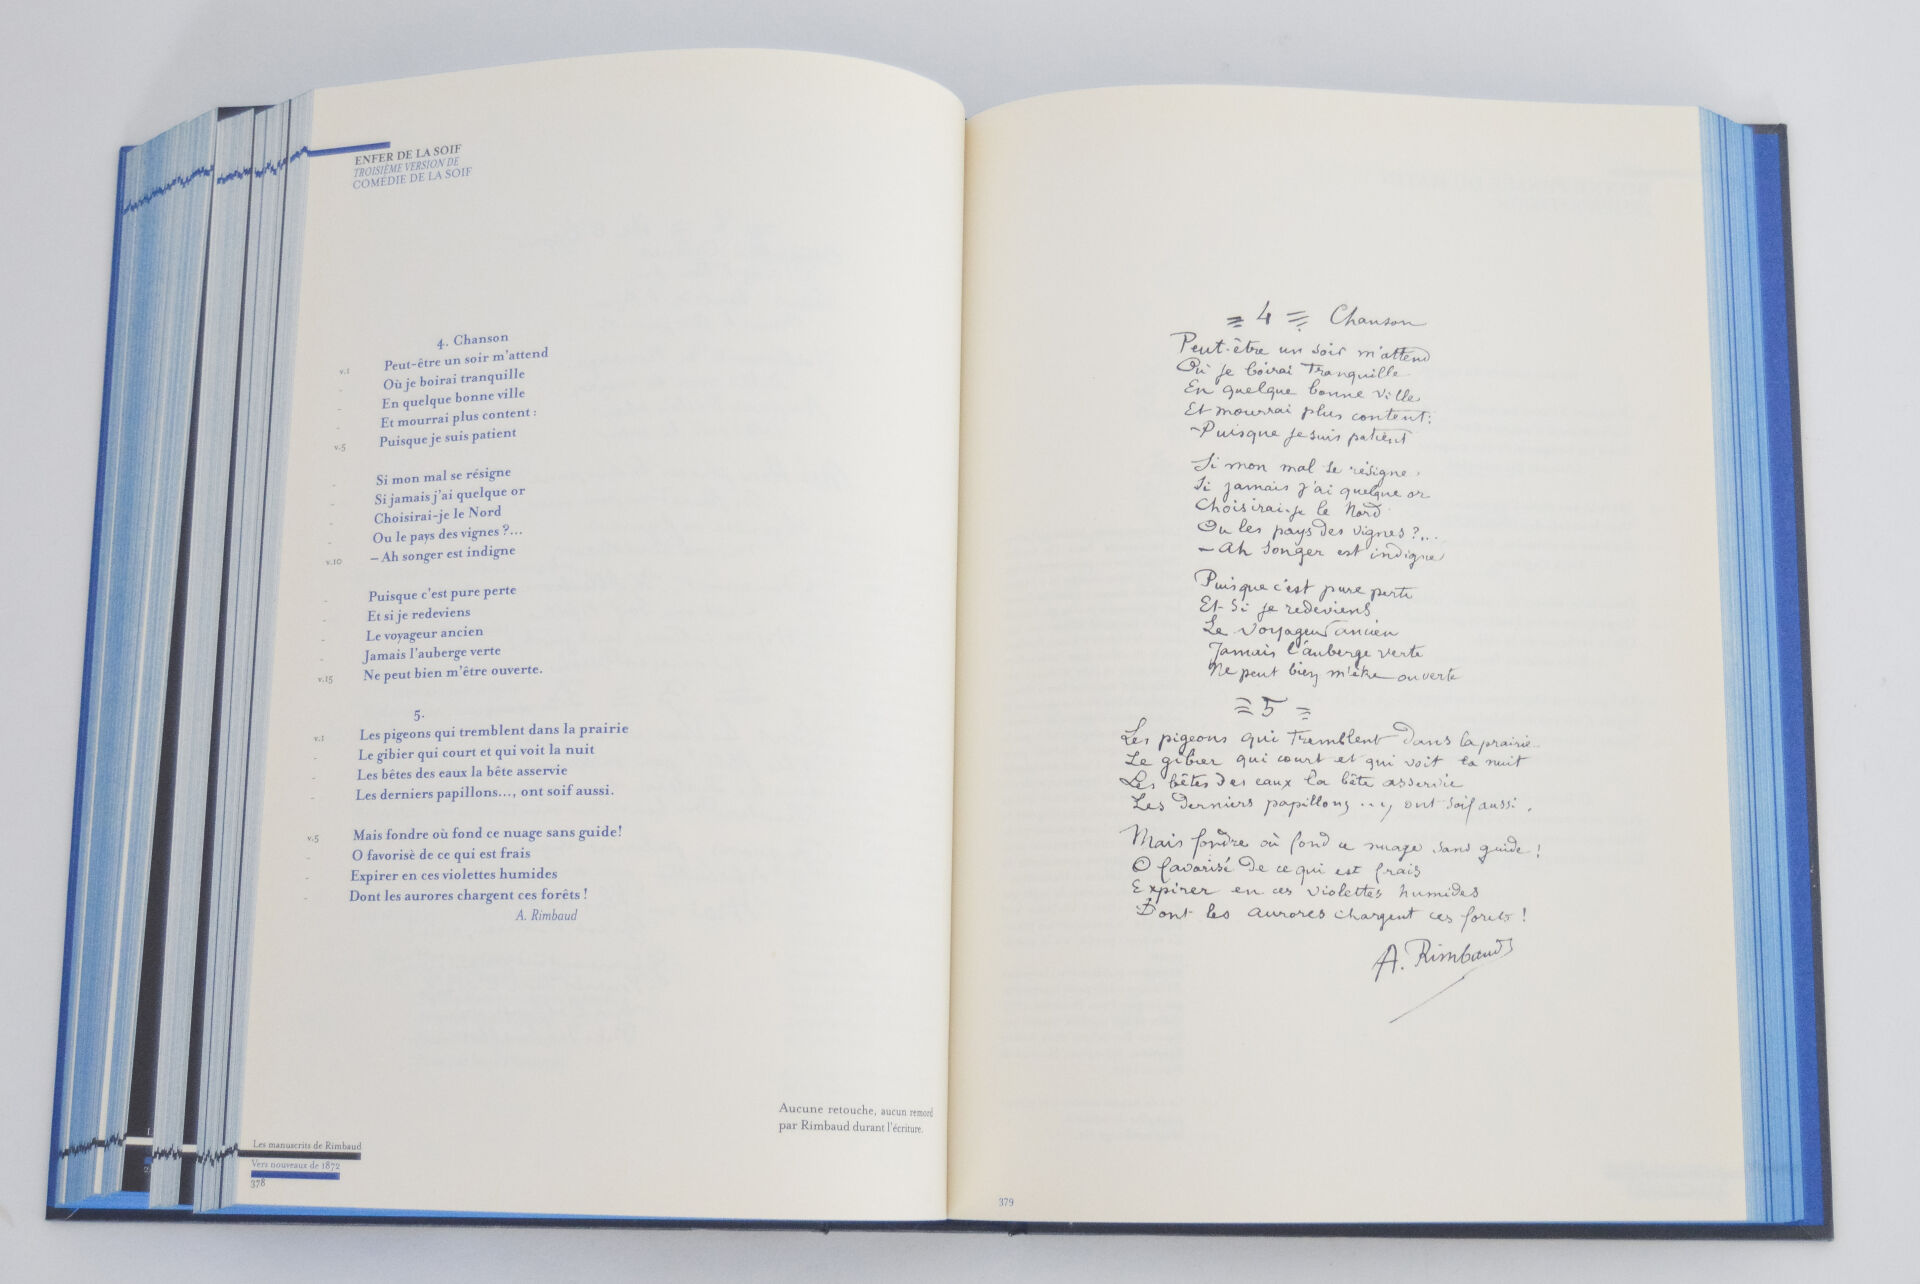 ENFER DE LA SOIF
TROISIÈME VERSION DE
COMÉDIE DE LA SOIF
4. Chanson
v.1 Peut-être un soir m'attend
- Où je boirai tranquille
- En quelque bonne ville
- Et mourrai plus content :
v.5 Puisque je suis patient
- Si mon mal se résigne
- Si jamais j'ai quelque or
- Choisirai-je le Nord
- Ou le pays des vignes ?...
v.10 – Ah songer est indigne
- Puisque c'est pure perte
- Et si je redeviens
- Le voyageur ancien
- Jamais l'auberge verte
v.15 Ne peut bien m'être ouverte.
5.
v.1 Les pigeons qui tremblent dans la prairie
- Le gibier qui court et qui voit la nuit
- Les bêtes des eaux la bête asservie
- Les derniers papillons..., ont soif aussi.
v.5 Mais fondre où fond ce nuage sans guide!
- O favorisè de ce qui est frais
- Expirer en ces violettes humides
- Dont les aurores chargent ces forêts !
A. Rimbaud
Aucune retouche, aucun remord
par Rimbaud durant l'écriture.
Les manuscrits de Rimbaud
Vers nouveaux de 1872
378
= 4 = Chanson
Peut-être un soir m'attend
Où je boirai tranquille
En quelque bonne ville
Et mourrai plus content :
- Puisque je suis patient
Si mon mal se résigne
Si jamais j'ai quelque or
Choisirai-je le Nord
Ou les pays des vignes ?...
- Ah songer est indigne
Puisque c'est pure perte
Et si je redeviens
Le voyageur ancien
Jamais l'auberge verte
Ne peut bien m'être ouverte
= 5 =
Les pigeons qui tremblent dans la prairie
Le gibier qui court et qui voit la nuit
Les bêtes des eaux la bête asservie
Les derniers papillons ..., ont soif aussi.
Mais fondre où fond ce nuage sans guide !
O favorisé de ce qui est frais
Expirer en ces violettes humides
Dont les aurores chargent ces forêts !
A. Rimbaud
379